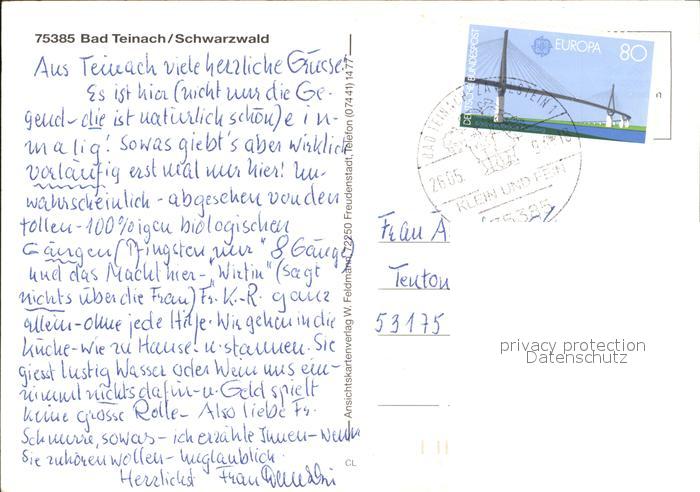 75385 Bad Teinach/Schwarzwald
Aus Teinach viele herzliche Grüsse.
Es ist hier (nicht nur die Ge-
gend - die ist natürlich schön) ein-
malig! Sowas giebt's aber wirklich
vorläufig erst mal nur hier! Un-
wahrscheinlich - abgesehen von den
tollen - 100%igen biologischen
Gängen (Pfingsten nur "8 Gänge)
und das Macht hier - "Wirtin" (sagt
nichts über die Frau) Fr. K.-R. ganz
allein - ohne jede Hilfe. Wir gehen in die
Küche - wie zu Hause - u. staunen. Sie
giesst lustig Wasser oder Wein uns ein -
nimmt nichts dafür - u. Geld spielt
keine grosse Rolle - Also liebe Fr.
sowas - ich erzähle Ihnen - wenn
Sie zuhören wollen - unglaublich.
Herzlichst Frau
Ansichtskartenverlag W. Feldmann, 72250 Freudenstadt, Telefon (07441) 1477
CL
DEUTSCHE BUNDESPOST
EUROPA
80
BAD TEINACH-ZAVELSTEIN 1
26.05.
KLEIN UND FEIN
75385
Frau A
Teuton
53175
privacy protection
Datenschutz